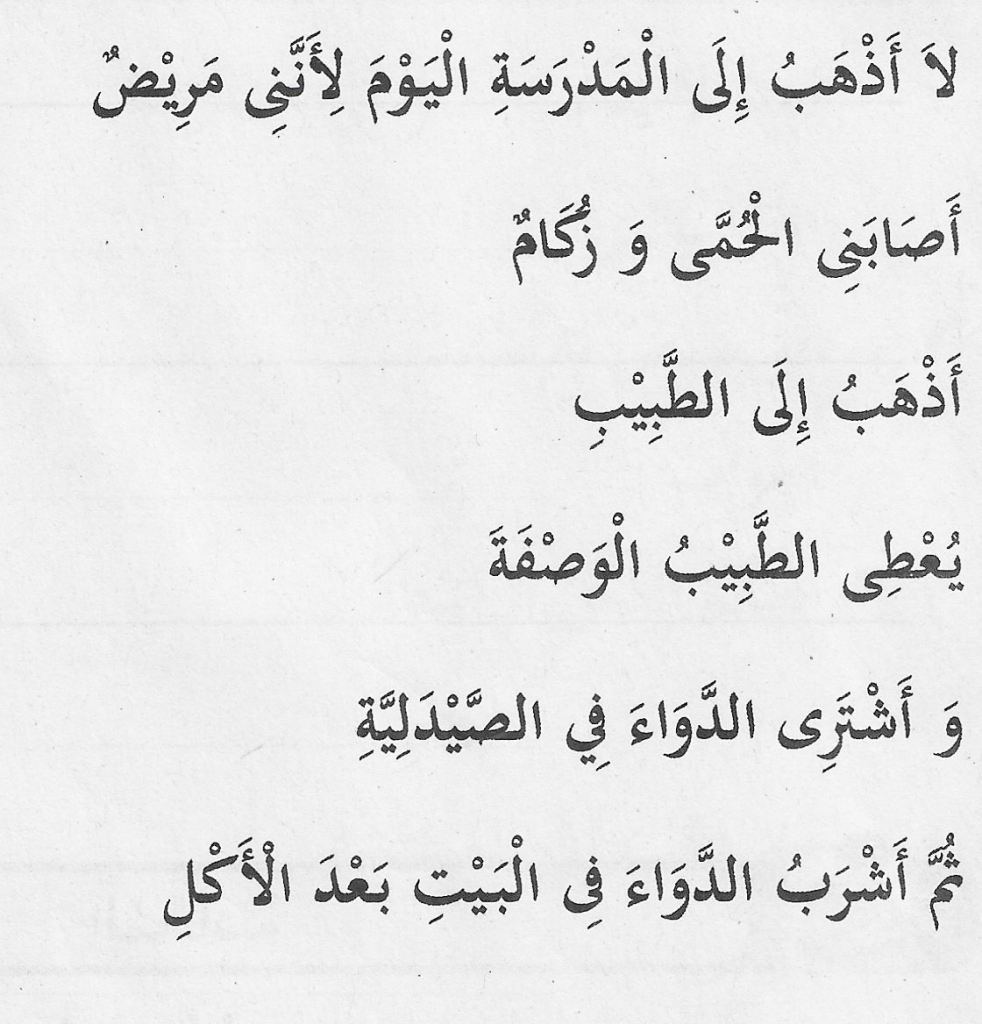 لاَ أَذْهَبُ إِلَى الْمَدْرَسَةِ الْيَوْمَ لِأَنَّنِى مَرِيْضٌ
أَصَابَنِى الْحُمَّى وَ زُكَامٌ
أَذْهَبُ إِلَى الطَّبِيْبِ
يُعْطِى الطَّبِيْبُ الْوَصْفَةَ
وَ أَشْتَرِى الدَّوَاءَ فِي الصَّيْدَلِيَّةِ
ثُمَّ أَشْرَبُ الدَّوَاءَ فِى الْبَيْتِ بَعْدَ الْأَكْلِ